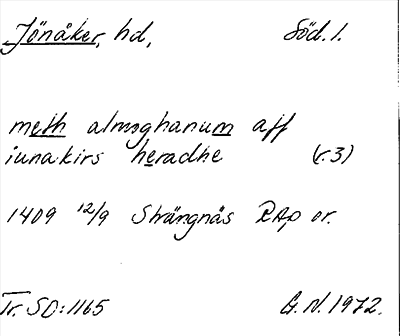 Jönåker, hd, Söd. l.
meth almoghanum aff
iunakirs heradhe (r. 3)
1409 12/9 Strängnäs RAp or.
Tr. SD: 1165 G. N. 1972.